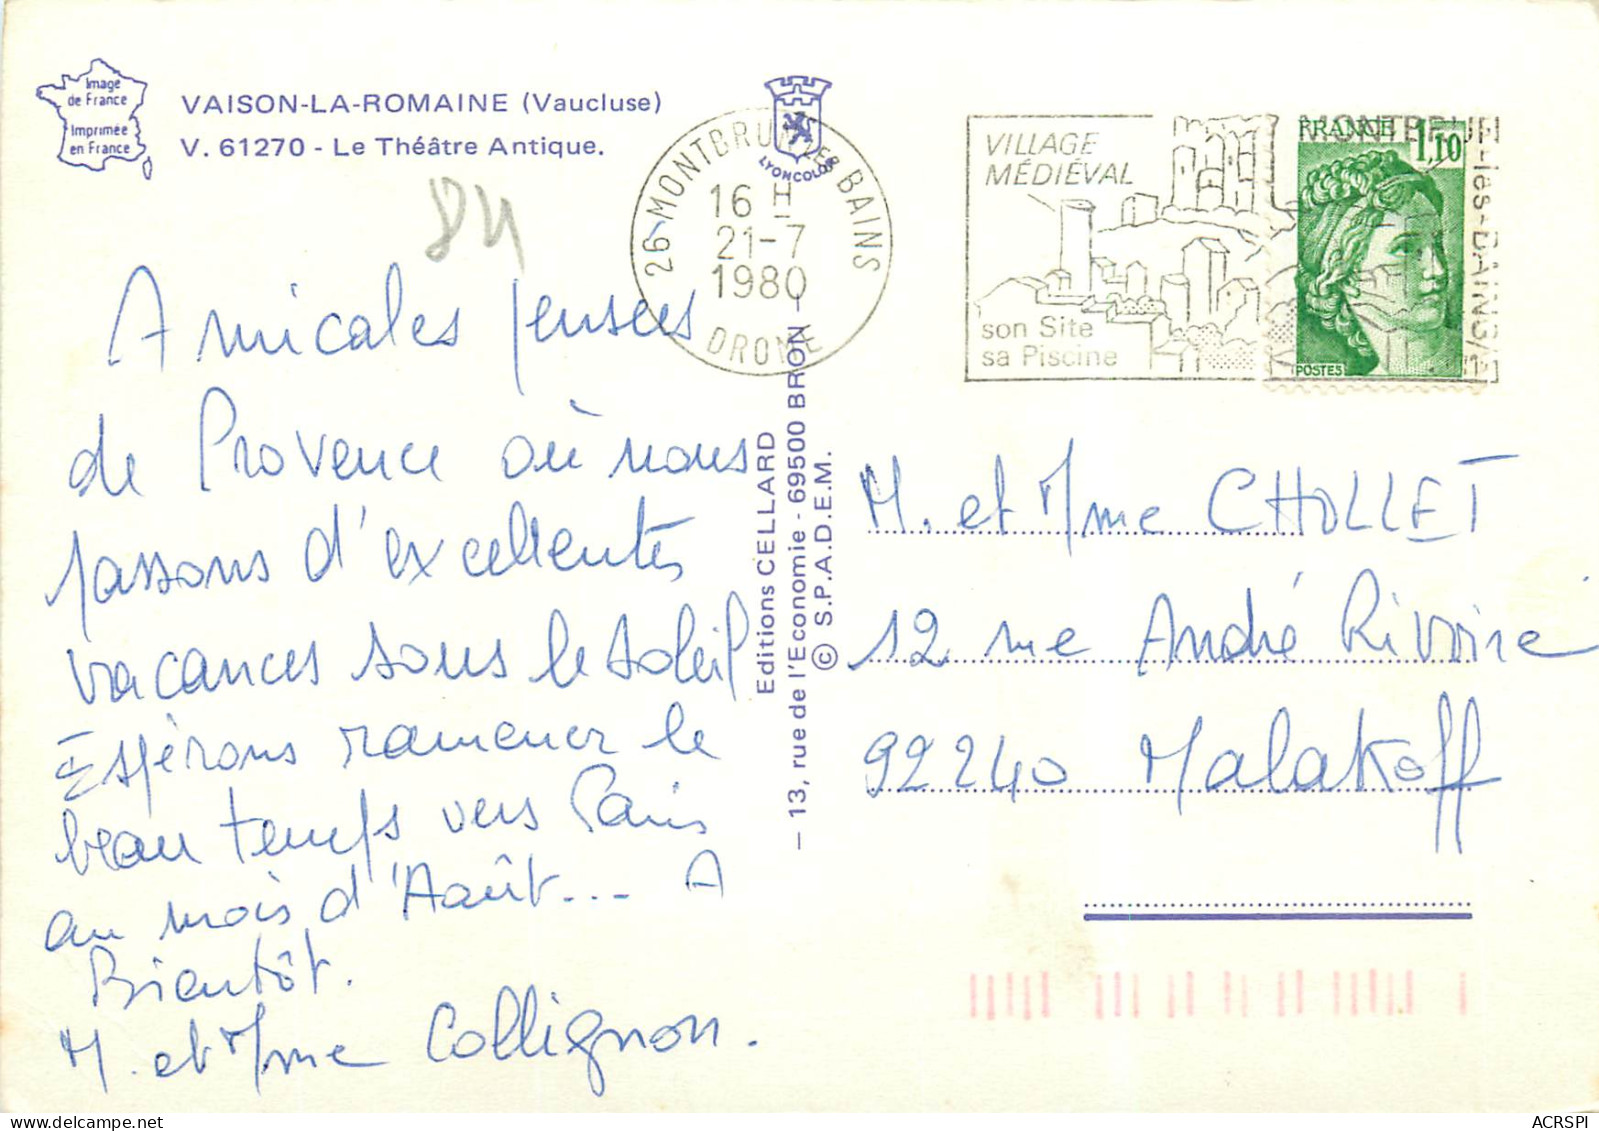 Image
de France
Imprimée
en France
VAISON-LA-ROMAINE (Vaucluse)
V. 61270 - Le Théâtre Antique.
84
Amicales pensées
de Provence où nous
passons d'excellentes
vacances sous le soleil
Espérons ramener le
beau temps vers Paris
au mois d'Août... A
Bientôt.
M. et Mme Collignon.
LYONCOLOR
26-MONTBRUN LES BAINS
16 H
21-7
1980
DROME
Editions CELLARD
— 13, rue de l'Economie - 69500 BRON —
© S.P.A.D.E.M.
VILLAGE
MÉDIÉVAL
son Site
sa Piscine
MONTBRUN
-les-BAINS
FRANCE
1,10
POSTES
M. et Mme CHOLLET
12 rue André Rivoire
92240 Malakoff
ACRSPI